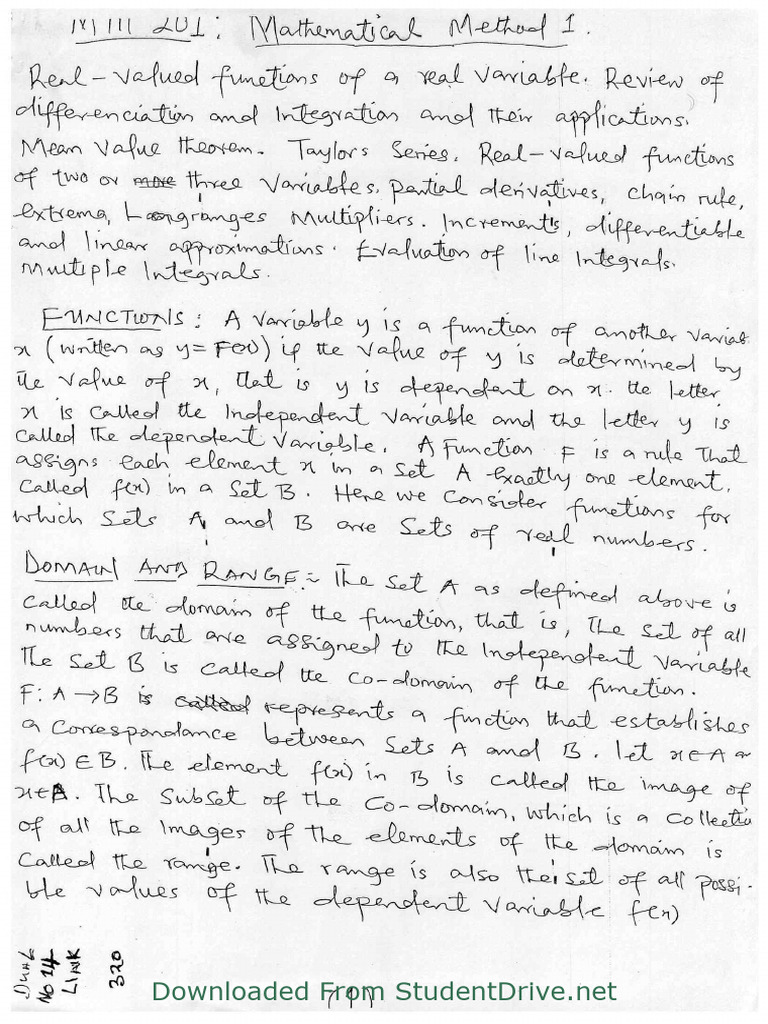 201: Mathematical Method 1.
Real-valued functions of a real variable. Review of
differenciation and Integration and their applications.
Mean Value theorem. Taylors Series. Real-valued functions
of two or more three variables, partial derivatives, chain rule,
extrema, Langranges Multipliers. Increments, differentiable
and linear approximations. Evaluation of line Integrals.
Multiple Integrals.
FUNCTIONS: A variable y is a function of another variab
x (written as y = F(x)) if the value of y is determined by
the value of x, that is y is dependent on x. the letter
x is called the Independent variable and the letter y is
called the dependent variable. A Function F is a rule that
assigns each element x in a set A exactly one element,
called f(x) in a set B. Here we consider functions for
which sets A and B are sets of real numbers.
DOMAIN AND RANGE:- The set A as defined above is
called the domain of the function, that is, The set of all
numbers that are assigned to the Independent variable
The set B is called the co-domain of the function.
F: A → B is called represents a function that establishes
a correspondance between sets A and B. let x∈A
f(x) ∈ B. The element f(x) in B is called the image of
x∈A. The Subset of the Co-domain, which is a collectio
of all the Images of the elements of the domain is
called the range. The range is also the set of all possi-
ble values of the dependent variable f(x)
No 14
LINK
320
Downloaded From StudentDrive.net